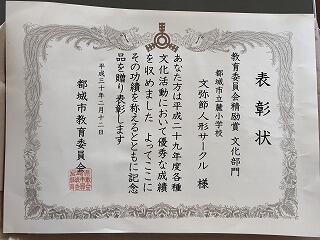 表彰状
教育委員会精励賞 文化部門
都城市立麓小学校
文弥節人形サークル 様
あなた方は平成二十九年度各種
文化活動において優秀な成績
を収めました よってここに
その功績を称えるとともに記念
品を贈り表彰します
平成三十年二月十二日
都城市教育委員会